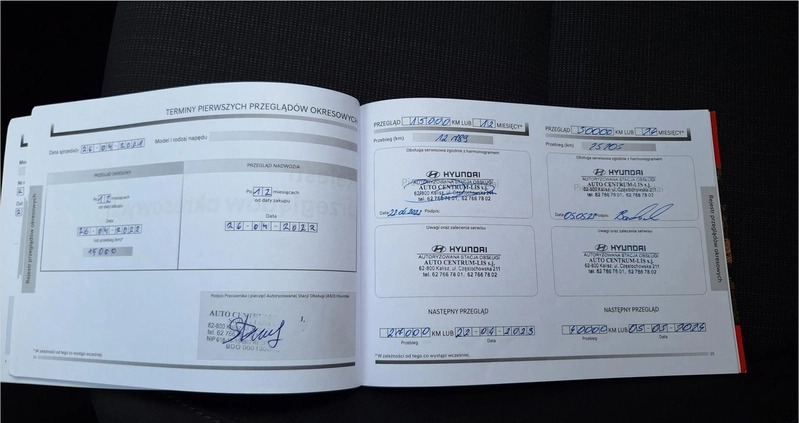 TERMINY PIERWSZYCH PRZEGLĄDÓW OKRESOWYCH
Data sprzedaży 26-04-2021 Model i rodzaj napędu
PRZEGLĄD OKRESOWY
Po 12 miesiącach
od daty zakupu
Data
26-04-2022
15000
PRZEGLĄD NADWOZIA
Po 12 miesiącach
od daty zakupu
Data
26-04-2022
AUTO
62-800
tel. 62
NIP
BDO
*W zależności od tego co wystąpi wcześniej.
Rejestr przeglądów okresowych
PRZEGLĄD 15000 KM LUB 12 MIESIĘCY*
Przebieg (km) 12 789
Obsługa serwisowa zgodnie z harmonogramem
HYUNDAI
AUTORYZOWANA STACJA OBSŁUGI
AUTO CENTRUM-LIS s.j.
62-800 Kalisz, ul. Częstochowska 211
tel. 62 766 76 01, 62 766 78 02
Data Podpis:
Uwagi oraz zalecenia serwisowe
HYUNDAI
AUTORYZOWANA STACJA OBSŁUGI
AUTO CENTRUM-LIS s.j.
62-800 Kalisz, ul. Częstochowska 211
tel. 62 766 76 01, 62 766 78 02
NASTĘPNY PRZEGLĄD
KM LUB 22-04-2023
Przebieg Data
*W zależności od tego co wystąpi wcześniej.
PRZEGLĄD KM LUB MIESIĘCY*
Przebieg (km)
Obsługa serwisowa zgodnie z harmonogramem
HYUNDAI
AUTORYZOWANA STACJA OBSŁUGI
AUTO CENTRUM-LIS s.j.
62-800 Kalisz, ul. Częstochowska 211
tel. 62 766 76 01, 62 766 78 02
Data Podpis:
Uwagi oraz zalecenia serwisowe
HYUNDAI
AUTORYZOWANA STACJA OBSŁUGI
AUTO CENTRUM-LIS s.j.
62-800 Kalisz, ul. Częstochowska 211
tel. 62 766 76 01, 62 766 78 02
NASTĘPNY PRZEGLĄD
KM LUB 05-05-2024
Przebieg Data
Rejestr przeglądów okresowych